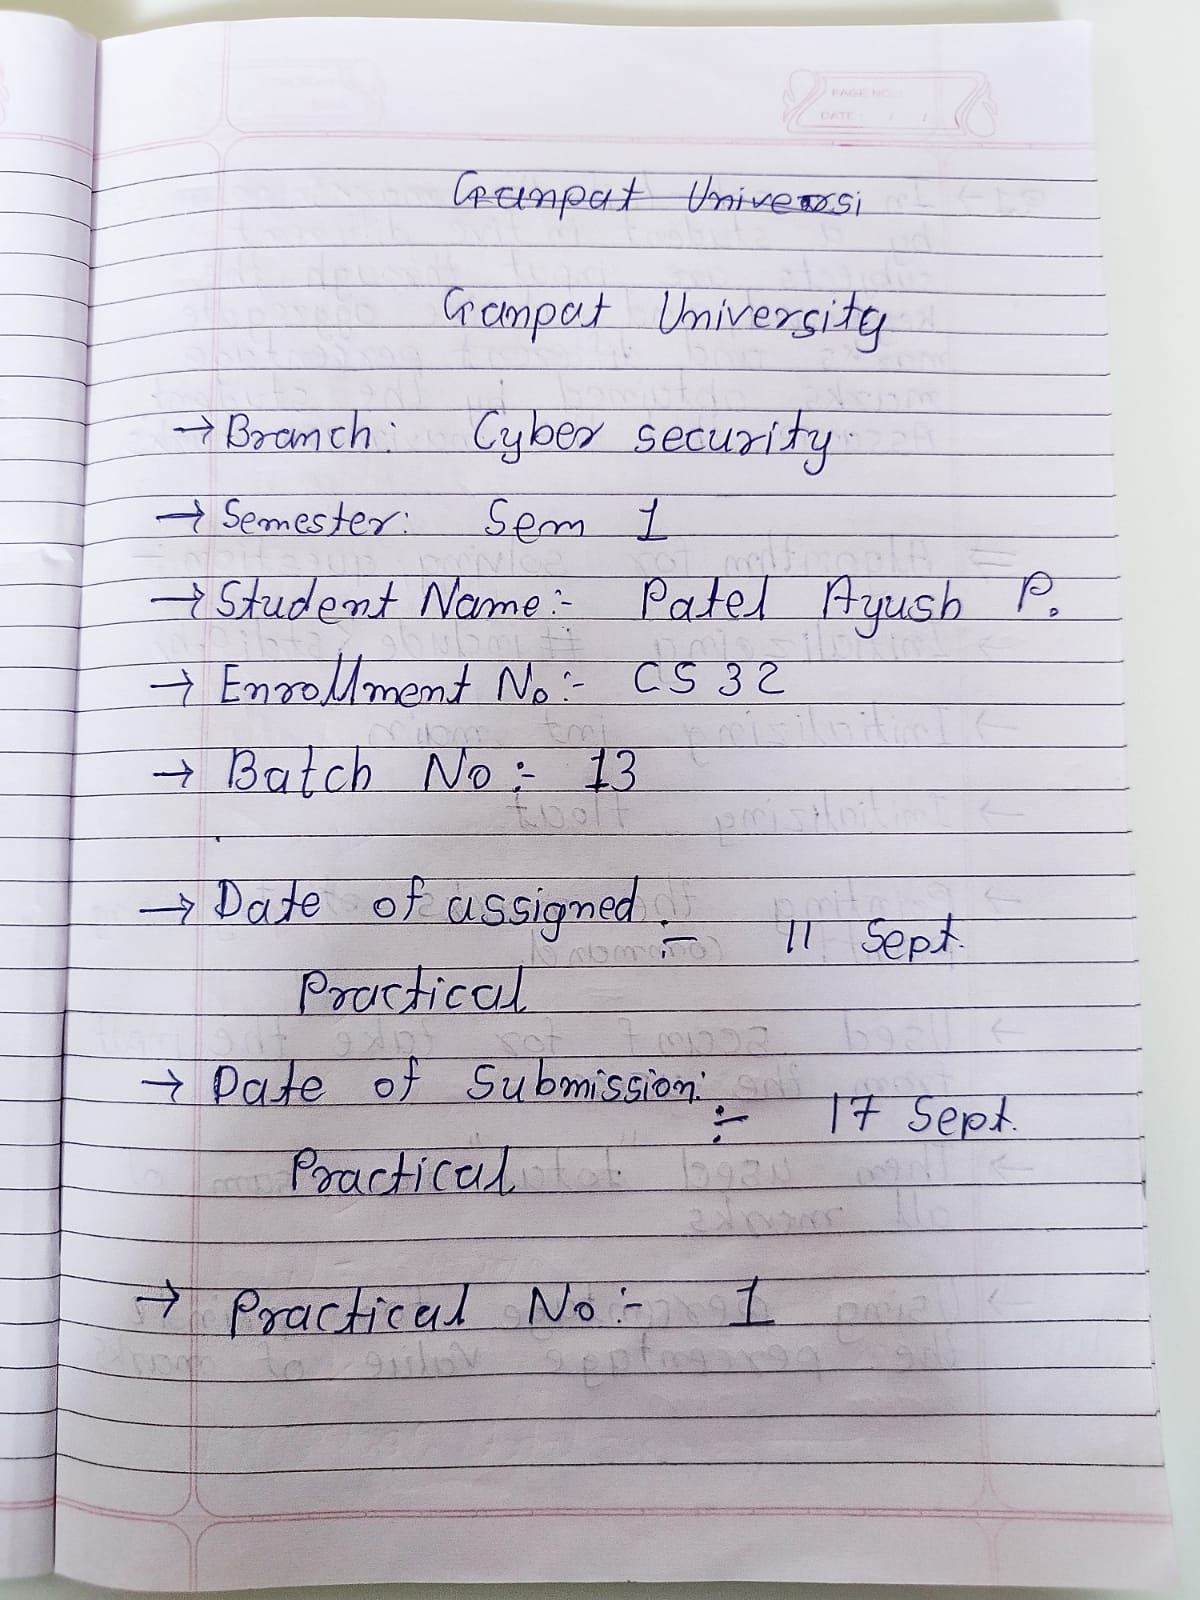 PAGE NO.:
DATE: / /
Ganpat Universi
Ganpat University
→ Branch: Cyber security.
→ Semester: Sem 1
→ Student Name:- Patel Ayush P.
→ Enrollment No:- CS 32
→ Batch No:- 13
→ Date of assigned :- 11 Sept.
Practical
→ Date of Submission: ÷ 17 Sept.
Practical
→ Practical No:- 1